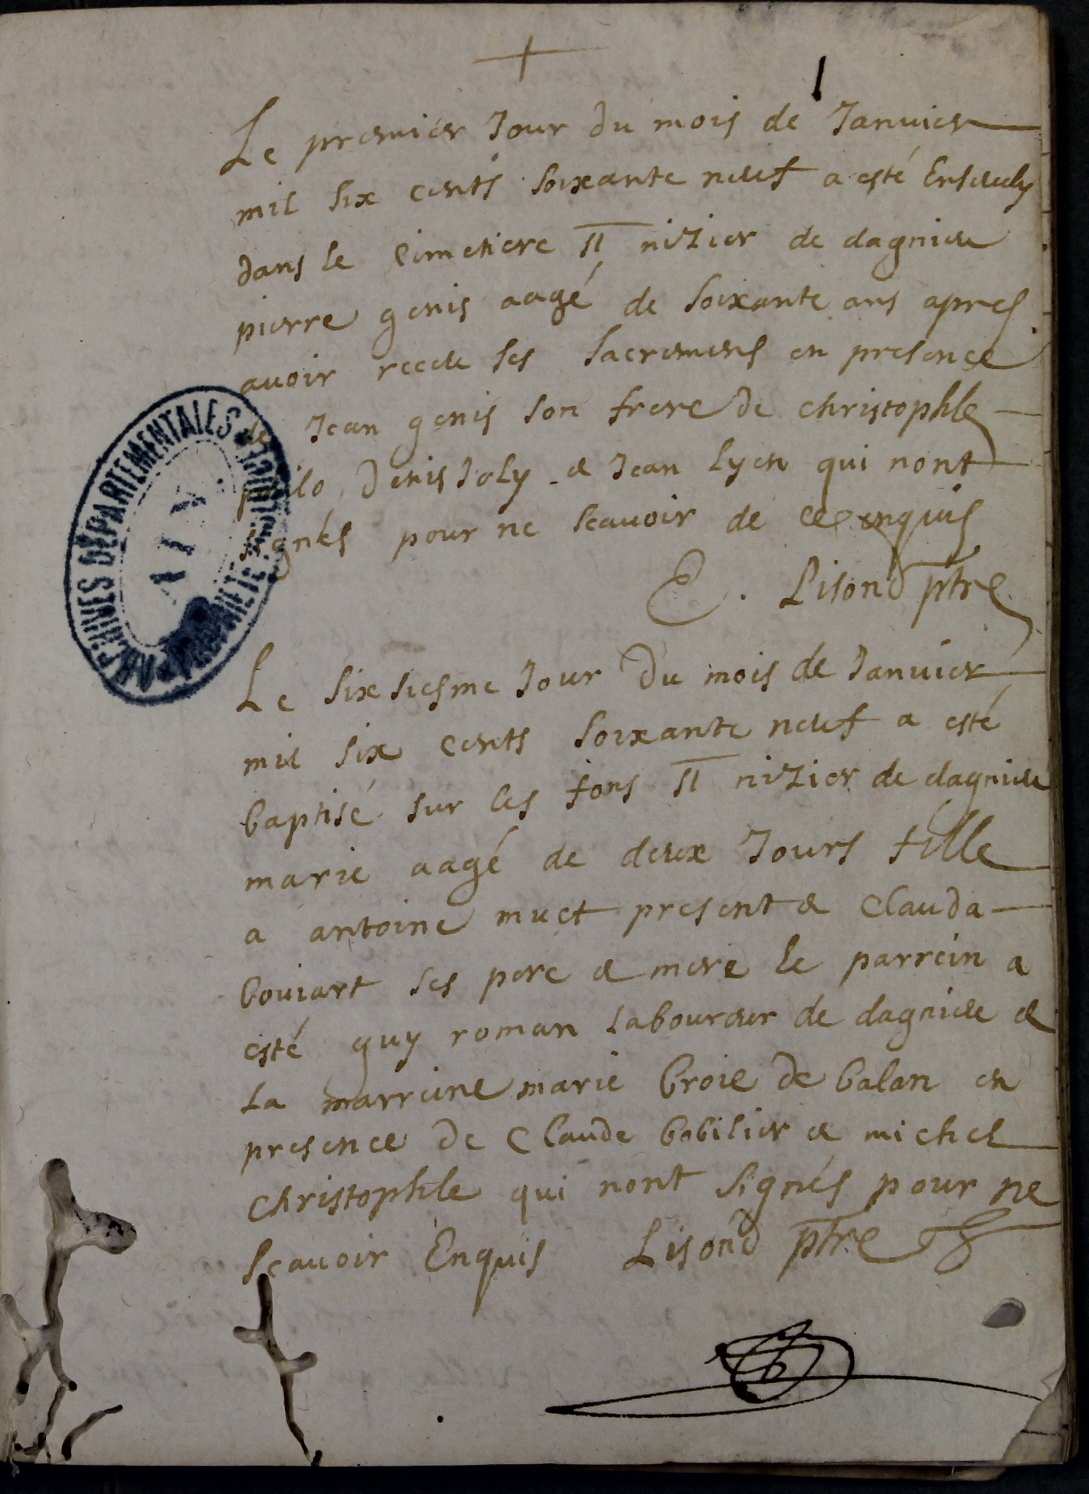 1
Le premier Jour du mois de Janvier
mil six cents soixante neuf a esté Enseuely
dans le Cimetiere st nizier de dagnieu
pierre genis aagé de soixante ans apres
auoir receu ses sacremens en presence
de Jean genis son frere de christophle
philo denis Joly & Jean lyon qui nont
signés pour ne scauoir de ce enquis
E. Lisond ptre
Le sixsiesme Jour du mois de Januier
mil six cents soixante neuf a esté
baptisé sur les fons st nizier de dagnieu
marie aagé de deux Jours fille
a antoine muet present & Clauda
bouiart ses pere & mere le parrein a
esté guy roman laboureur de dagnieu &
la marreine marie broie de balan en
presence de Claude bobilier & michel
christophle qui nont signés pour ne
scauoir Enquis Lisond ptre
ARCHIVES DÉPARTEMENTALES
AIN
PROPRIÉTÉ PUBLIQUE